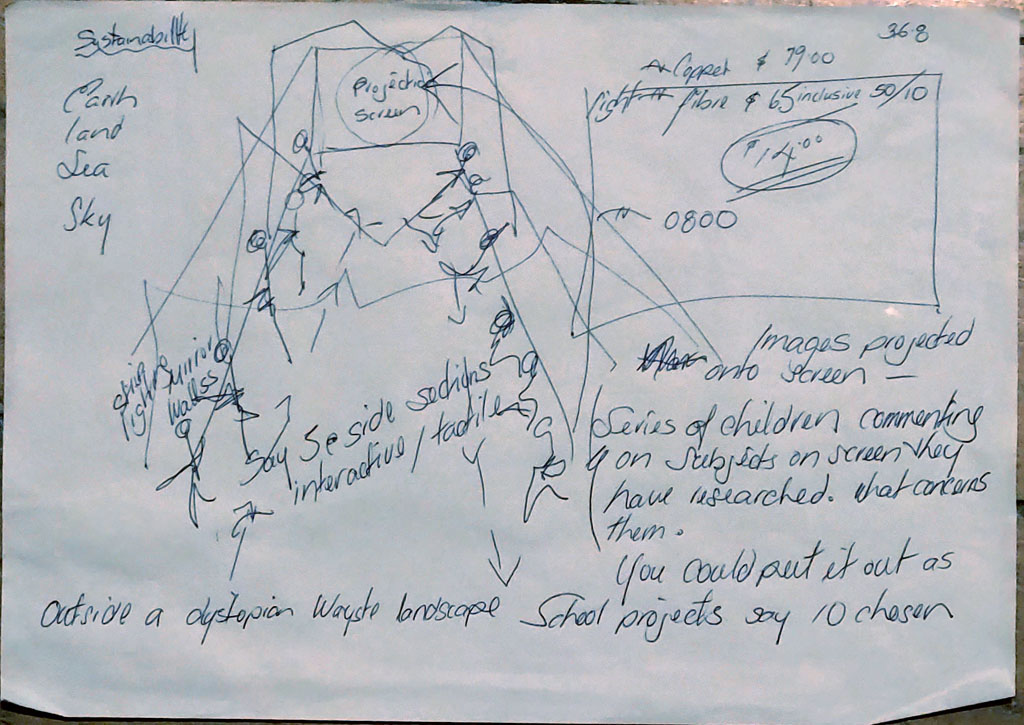 Sustainability
36.8
Earth
land
Sea
Sky
Projection
screen
Copper $ 79.00
fibre $ 65 inclusive 50/10
$14.00
0800
mirror
walls
Say 5 side sections
interactive / tactile
Images projected
onto screen —
Series of children commenting
on subjects on screen they
have researched. What concerns
them.
You could put it out as
School projects say 10 chosen
Outside a dystopian Wayste landscape